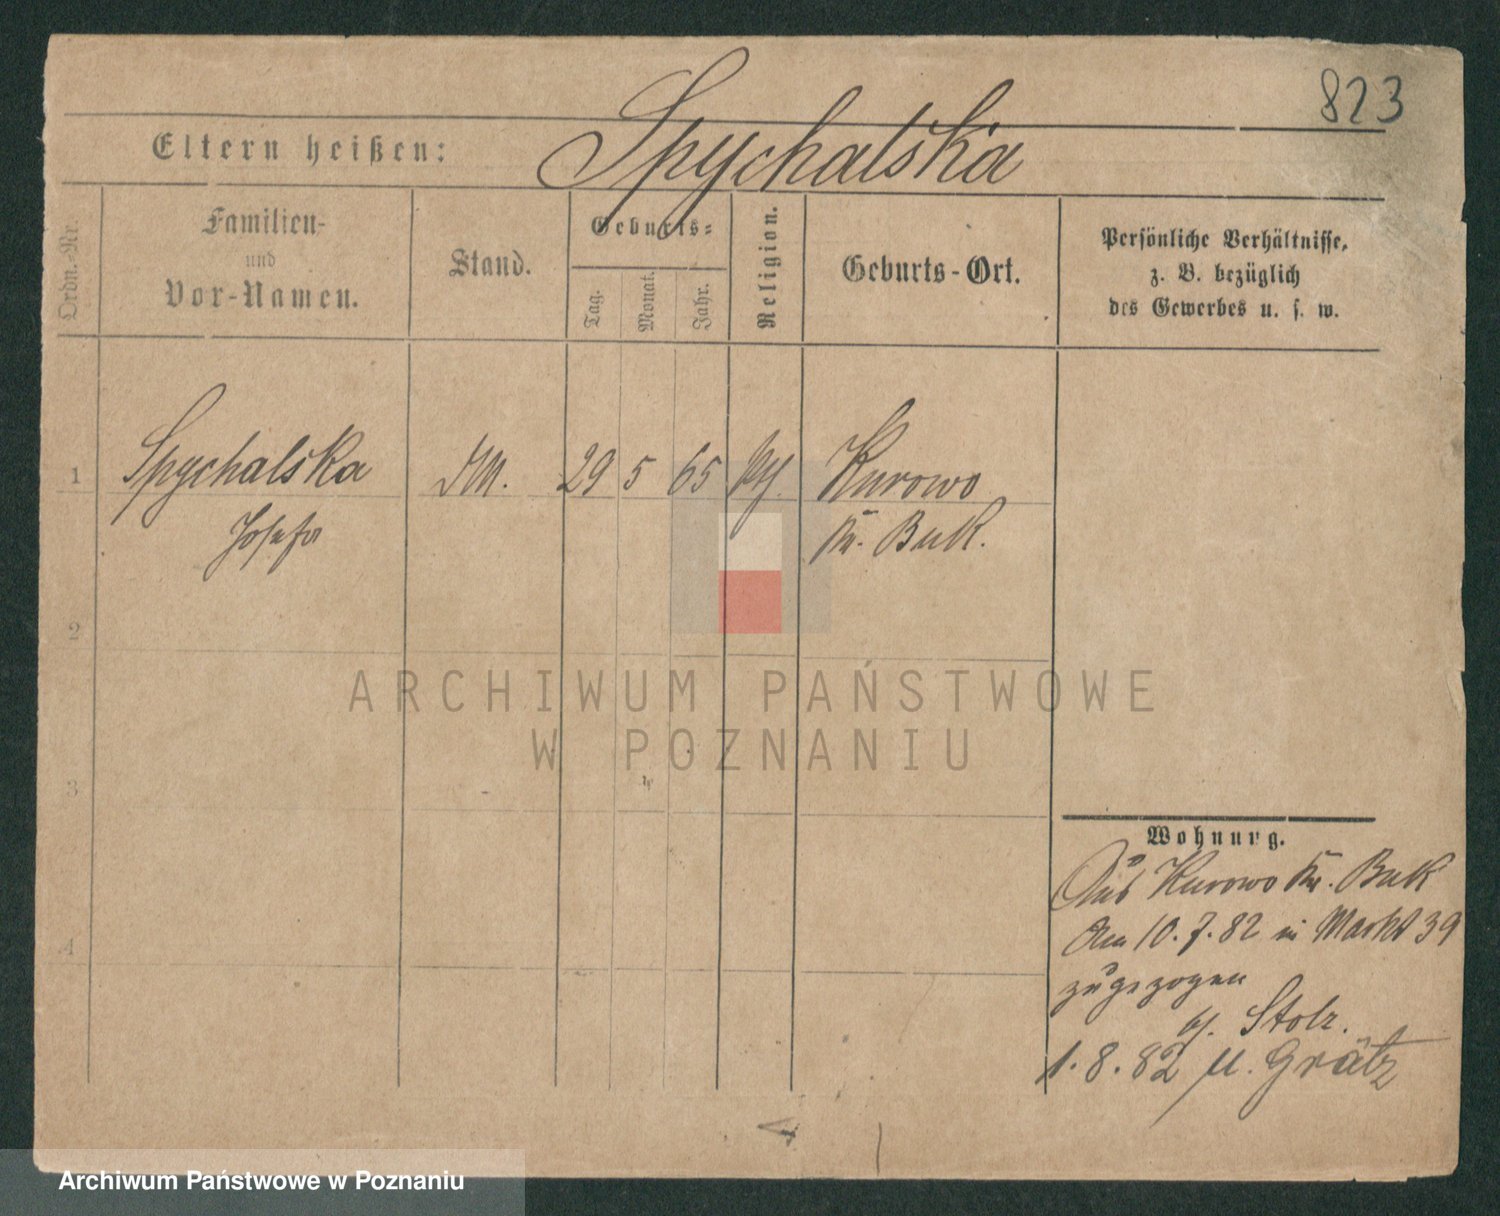 823
Eltern heißen: Spychalska
Ordn.-Nr.
Familien-
und
Vor-Namen.
Stand.
Geburts-
Tag.
Monat.
Jahr.
Religion.
Geburts-Ort.
Persönliche Verhältnisse,
z. B. bezüglich
des Gewerbes u. s. w.
1 Spychalska DM. 29 5 65 Kurowo
Josefa Kr. Buk.
2
ARCHIWUM PAŃSTWOWE
W POZNANIU
3
4
Wohnung.
Aus Kurowo Kr. Buk
Am 10.7.82 in Markt 39
zugezogen
Stolz.
1.8.82 Grätz
Archiwum Państwowe w Poznaniu